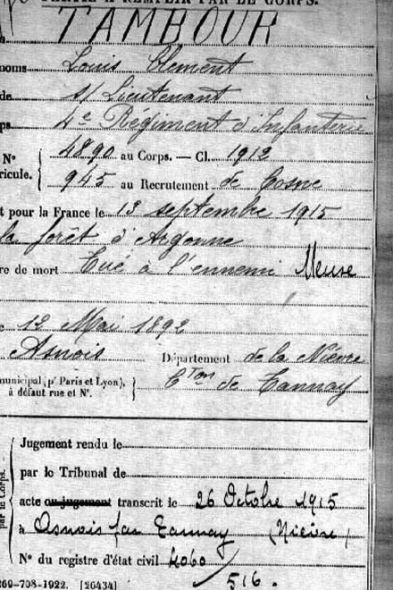 PARTIE À REMPLIR PAR LE CORPS.
TAMBOUR
noms Louis Clément
de s/ Lieutenant
ps 4e Régiment d'Infanterie
N° 4890 au Corps. — Cl. 1912
ricule. 945 au Recrutement de Cosne
t pour la France le 13 septembre 1915
la forêt d'Argonne
re de mort Tué à l'ennemi Meuse
12 Mai 1892
Asnois Département de la Nièvre
municipal (pr Paris et Lyon), à défaut rue et N°. Cton de Tannay
Jugement rendu le
par le Tribunal de
acte ou jugement transcrit le 26 Octobre 1915
à Asnois par Tannay (Nièvre)
N° du registre d'état civil 4060/516.
par le Corps.
269-708-1922. [26434]